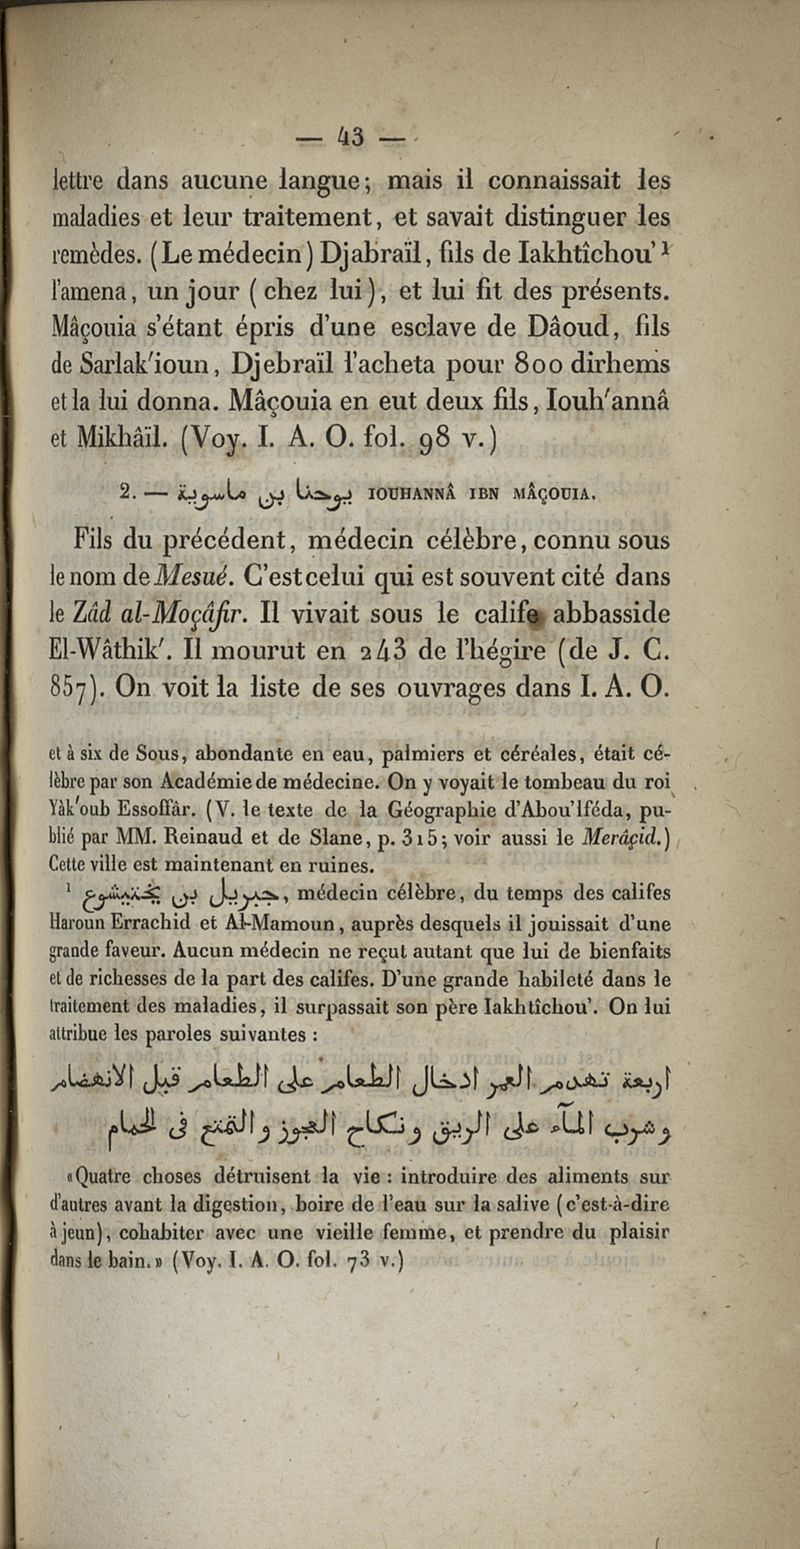 — 43 —
lettre dans aucune langue; mais il connaissait les
maladies et leur traitement, et savait distinguer les
remèdes. (Le médecin) Djabraïl, fils de Iakhtîchou’ ¹
l’amena, un jour (chez lui), et lui fit des présents.
Mâçouia s’étant épris d’une esclave de Dâoud, fils
de Sarlak'ioun, Djebraïl l’acheta pour 800 dirhems
et la lui donna. Mâçouia en eut deux fils, Iouh'annâ
et Mikhâïl. (Voy. I. A. O. fol. 98 v.)
2. — يوحنا بن ماسوية IOUHANNÂ IBN MÂÇOUIA.
Fils du précédent, médecin célèbre, connu sous
le nom de Mesué. C’est celui qui est souvent cité dans
le Zâd al-Moçâfir. Il vivait sous le calife abbasside
El-Wâthik'. Il mourut en 243 de l’hégire (de J. C.
857). On voit la liste de ses ouvrages dans I. A. O.
et à six de Sous, abondante en eau, palmiers et céréales, était cé-
lèbre par son Académie de médecine. On y voyait le tombeau du roi
Yâk'oub Essoffâr. (V. le texte de la Géographie d’Abou’lféda, pu-
blié par MM. Reinaud et de Slane, p. 315; voir aussi le Merâçid.)
Cette ville est maintenant en ruines.
¹ جبريل بن بختيشوع, médecin célèbre, du temps des califes
Haroun Errachid et Al-Mamoun, auprès desquels il jouissait d’une
grande faveur. Aucun médecin ne reçut autant que lui de bienfaits
et de richesses de la part des califes. D’une grande habileté dans le
traitement des maladies, il surpassait son père Iakhtîchou’. On lui
attribue les paroles suivantes :
اربعة تهدم العمر ادخال الطعام على الطعام قبل الانهضام
وشرب الماء على الريق ونكاح العجوز والتمتع فى الحمام
«Quatre choses détruisent la vie : introduire des aliments sur
d’autres avant la digestion, boire de l’eau sur la salive (c’est-à-dire
à jeun), cohabiter avec une vieille femme, et prendre du plaisir
dans le bain.» (Voy. I. A. O. fol. 73 v.)